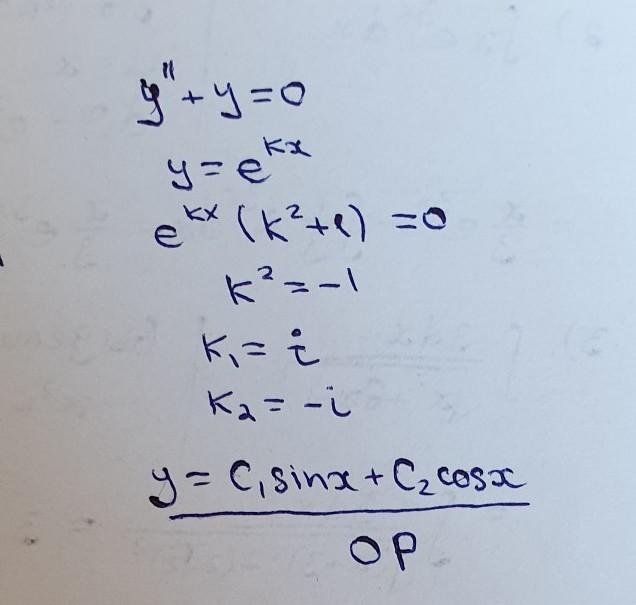 y'' + y = 0
y = e^{kx}
e^{kx} (k² + 1) = 0
k² = -1
k₁ = i
k₂ = -i
y = C₁ sinx + C₂ cosx
OP